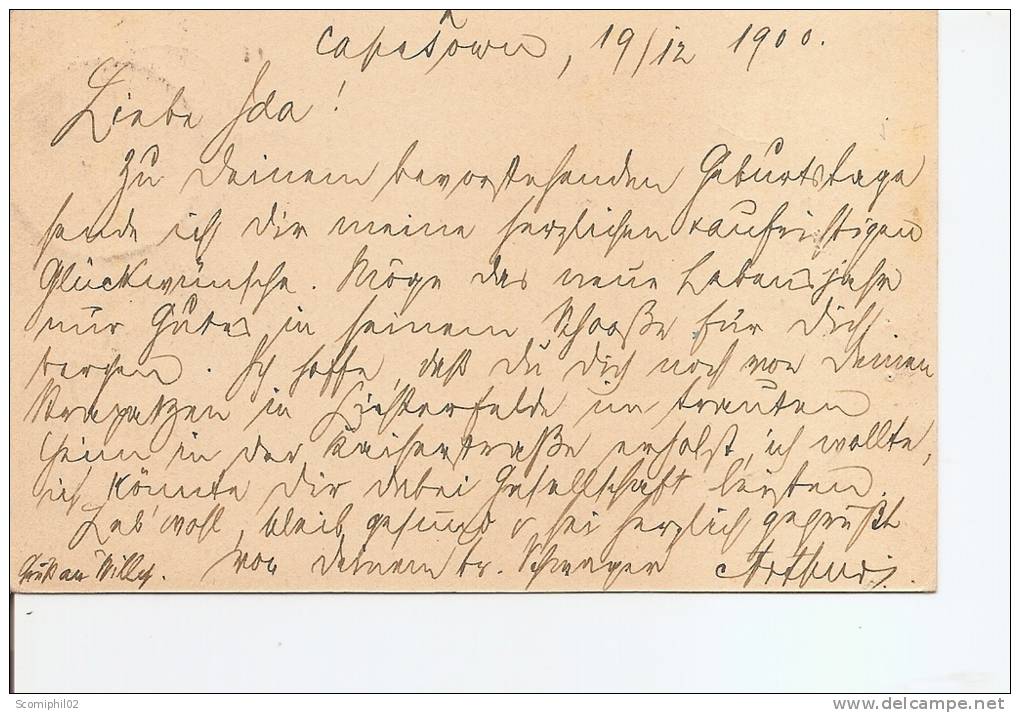 Capetown, 19/12 1900.
Liebe Ida!
Zu Deinem bevorstehenden Geburtstage
sende ich Dir meine herzlichen + aufrichtigen
Glückwünsche. Möge das neue Lebensjahr
nur Gutes in seinem Schooße für Dich
bergen. Ich hoffe, daß Du Dich noch von Deinen
Strapatzen in Lichterfelde im trauten
Heim in der Kaiserstraße erholst, ich wollte,
ich könnte Dir dabei Gesellschaft leisten.
Leb' wohl, bleib gesund & sei herzlich gegrüßt
von Deinem tr. Schwager Arthur.
Gruß an Willy.
Scomiphil02
www.delcampe.net